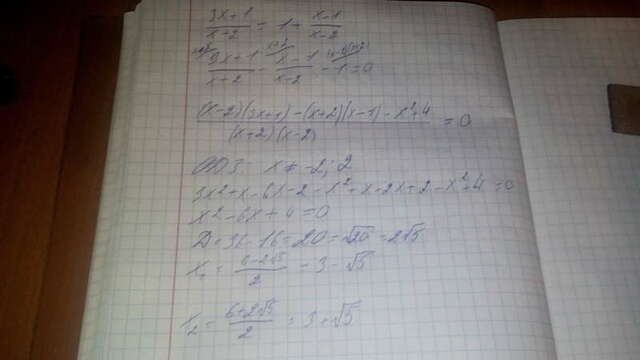 3x+1/x+2 = 1 + x-1/x-2
3x+1/x+2 - x-1/x-2 - 1 = 0
(x-2)(3x+1) - (x+2)(x-1) - x²+4 / (x+2)(x-2) = 0
ОДЗ: x ≠ -2; 2
3x²+x-6x-2-x²+x-2x+2-x²+4=0
x²-6x+4=0
D=36-16=20=√20=2√5
x₁ = 6-2√5/2 = 3-√5
x₂ = 6+2√5/2 = 3+√5